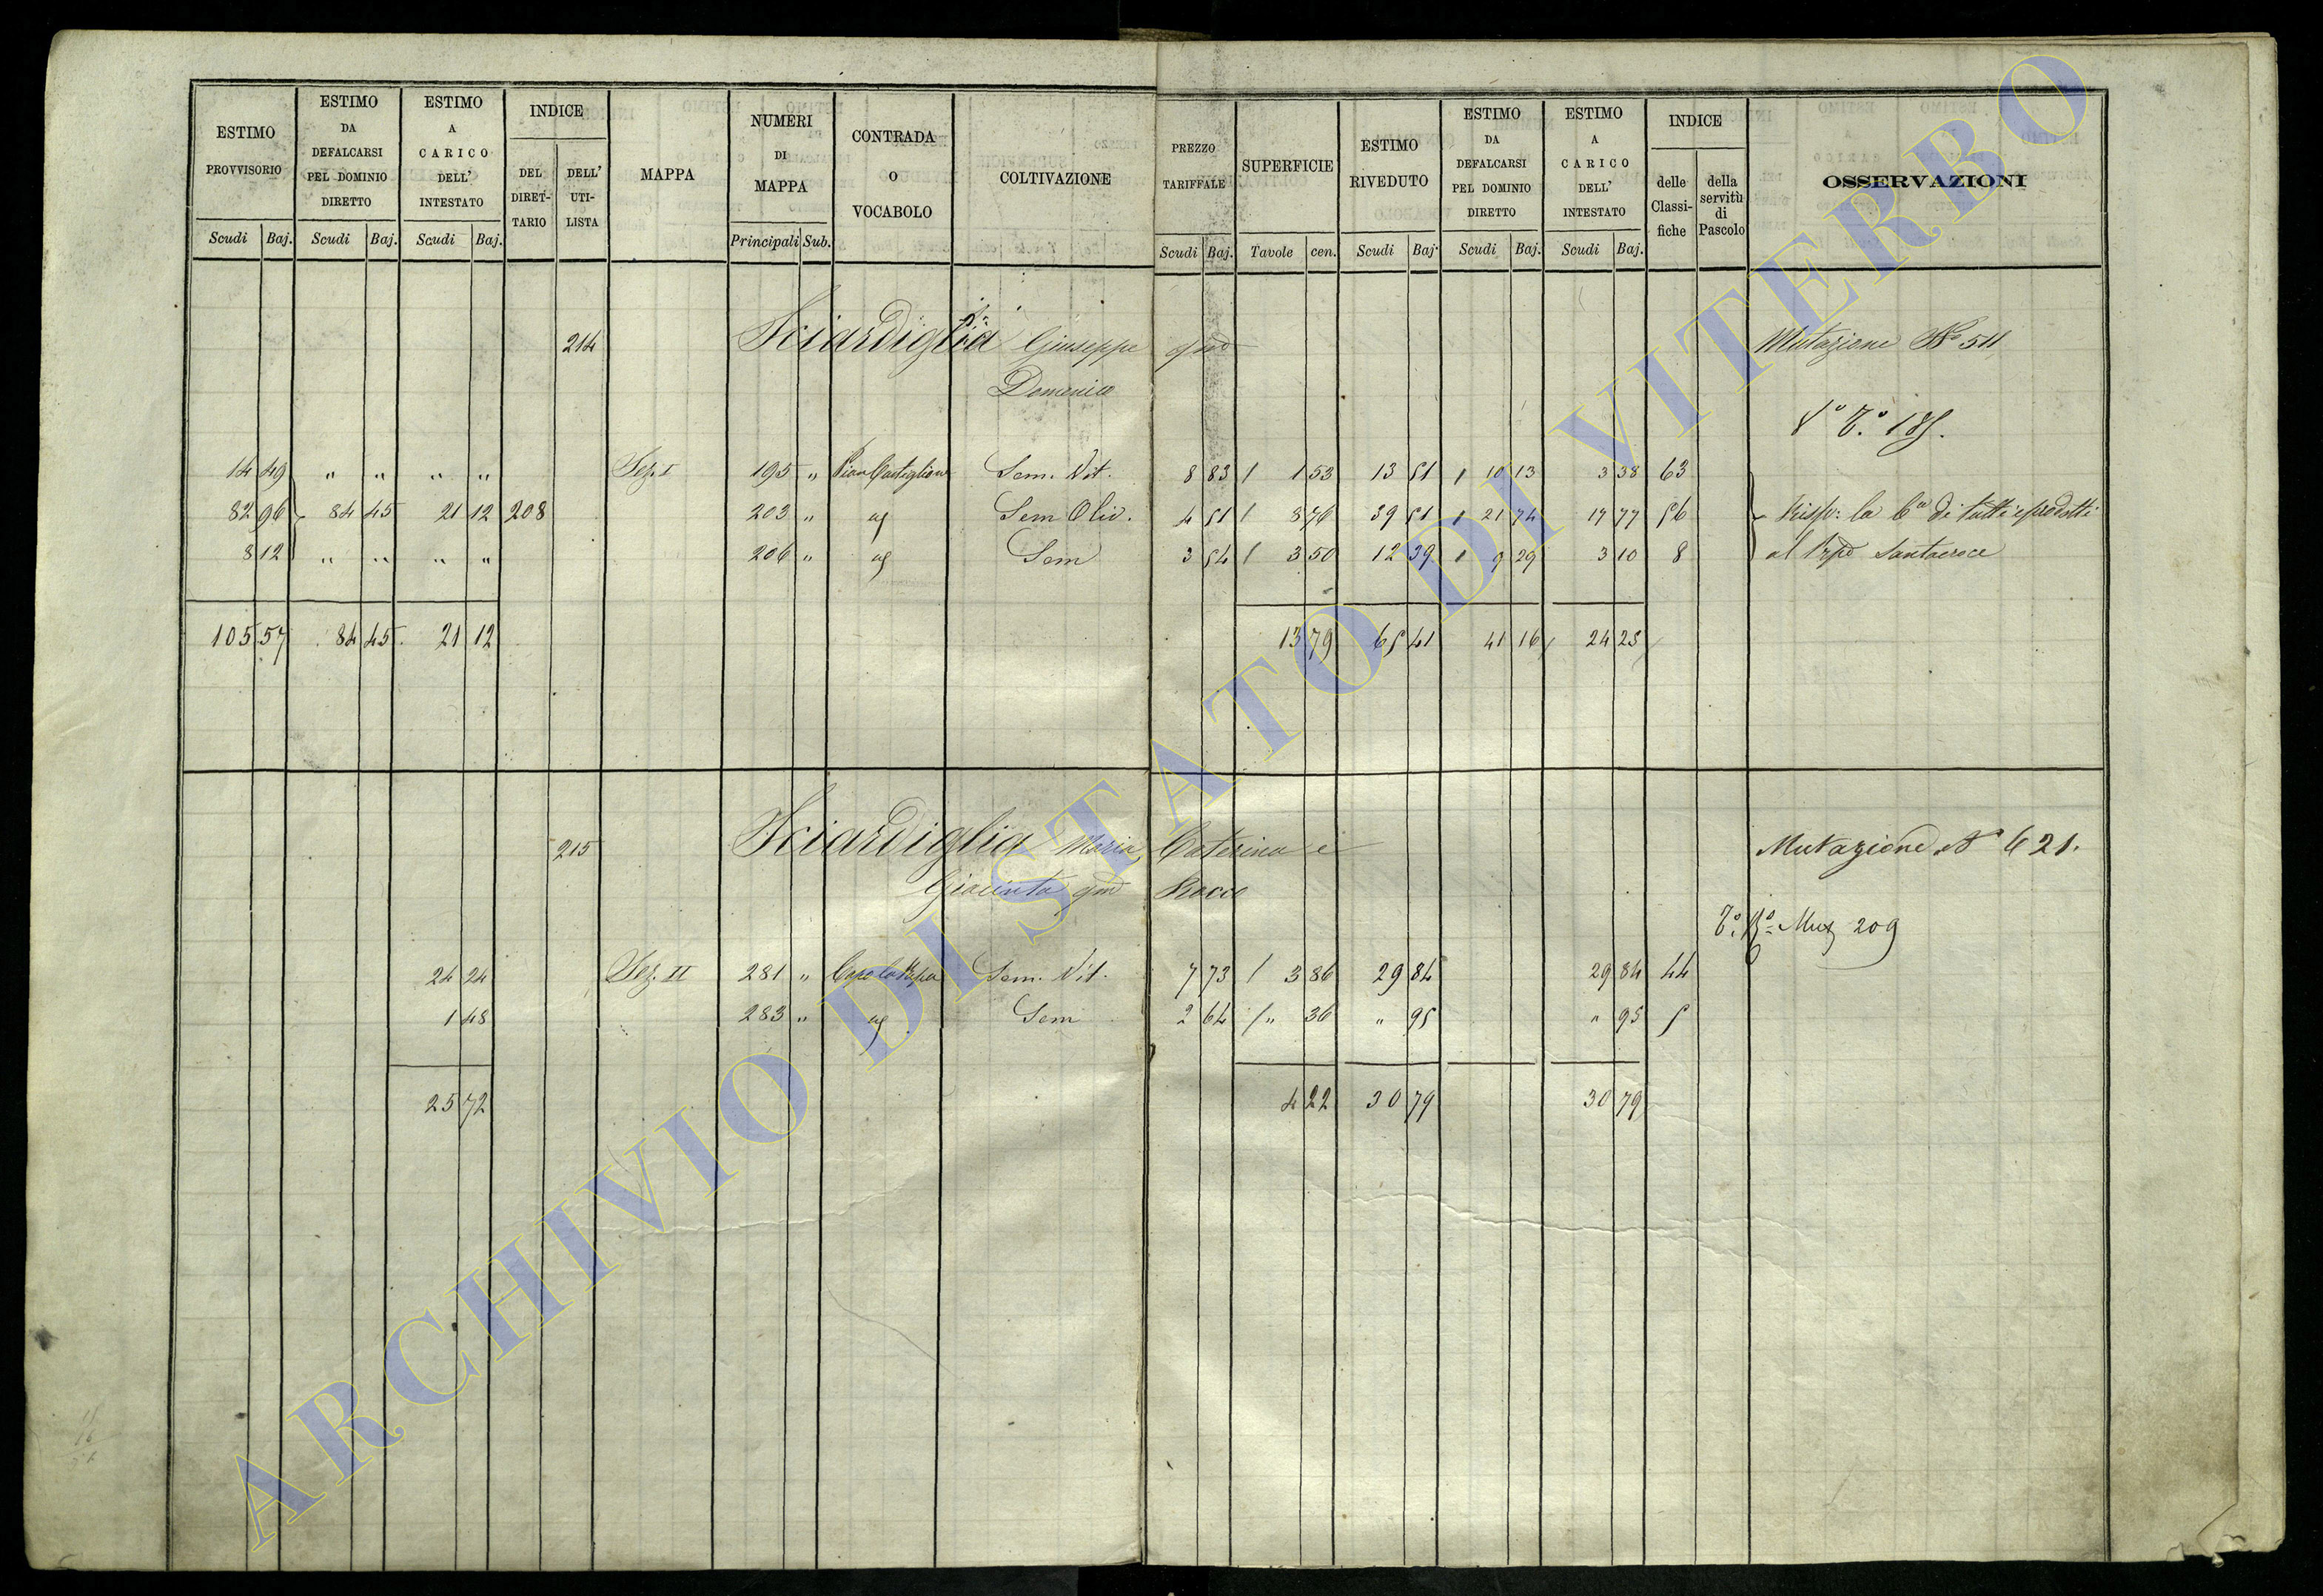 ESTIMO PROVVISORIO Scudi Baj.
ESTIMO DA DEFALCARSI PEL DOMINIO DIRETTO Scudi Baj.
ESTIMO A CARICO DELL' INTESTATO Scudi Baj.
INDICE DEL DIRETTARIO DELL' UTILISTA
MAPPA
NUMERI DI MAPPA Principali Sub.
CONTRADA O VOCABOLO
COLTIVAZIONE
PREZZO TARIFFALE Scudi Baj.
SUPERFICIE Tavole cen.
ESTIMO RIVEDUTO Scudi Baj.
ESTIMO DA DEFALCARSI PEL DOMINIO DIRETTO Scudi Baj.
ESTIMO A CARICO DELL' INTESTATO Scudi Baj.
INDICE delle Classifiche della servitù di Pascolo
OSSERVAZIONI
214 Sciardiglia Giuseppe qm Mutazione No 511
Domenico
14 49 " " " " Sez. I 195 " Pian Castiglione Sem. Vit. 8 83 1 53 13 51 10 13 3 38 63
82 96 84 45 21 12 208 203 " Sem Oliv. 4 51 8 76 39 51 21 74 17 77 56 Risp: la di tutti prodotti
8 12 " " " " 206 " Sem 3 54 3 50 12 39 9 29 3 10 8 al Santacroce
105 57 84 45 21 12 13 79 65 41 41 16 24 25
215 Sciardiglia Maria Caterina e Mutazione No 621.
Giacinta qm Rocco
Mut 209
24 24 Sez. II 281 " Sem. Vit. 7 73 3 86 29 84 29 84 44
1 48 283 " Sem 2 64 " 36 " 95 " 95 5
25 72 4 22 30 79 30 79
ARCHIVIO DI STATO DI VITERBO